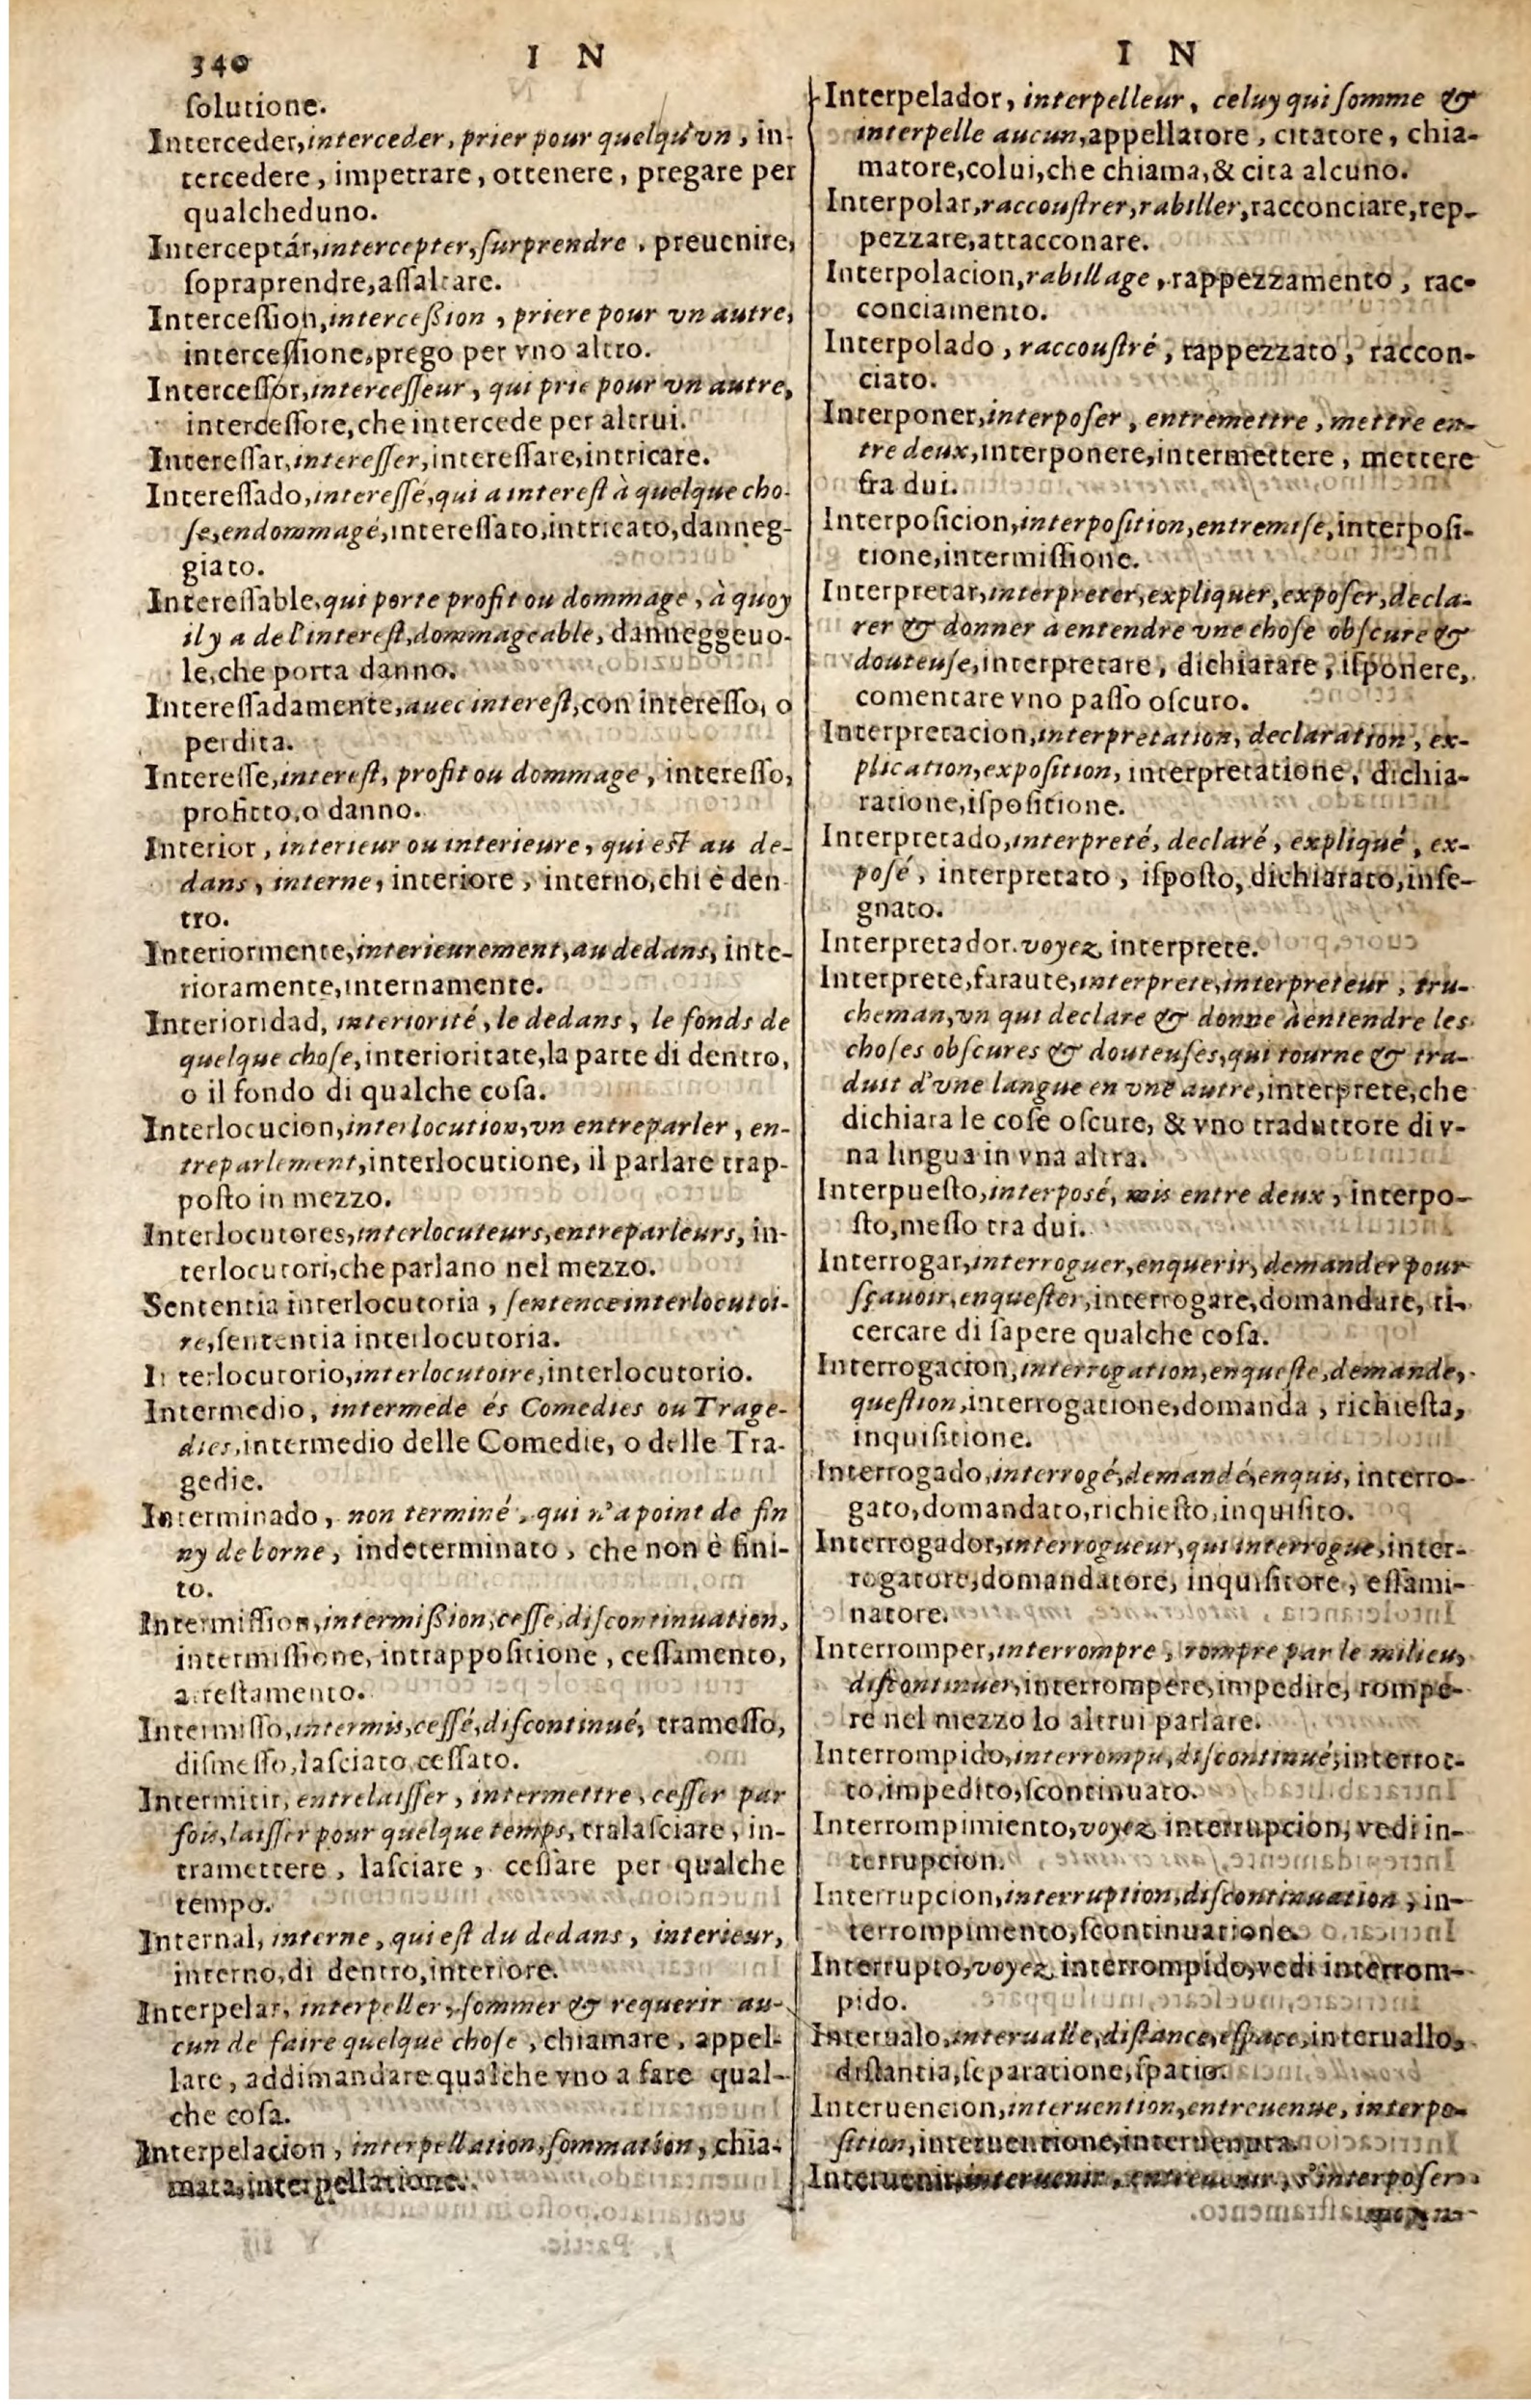 340 I N
solutione.
Interceder, interceder, prier pour quelqu'vn, in-
tercedere, impetrare, ottenere, pregare per
qualcheduno.
Interceptár, intercepter, surprendre, preuenire,
sopraprendre, assaltare.
Intercession, intercession, priere pour vn autre,
intercessione, prego per vno altro.
Intercessor, intercesseur, qui prie pour vn autre,
intercessore, che intercede per altrui.
Interessar, interesser, interessare, intricare.
Interessado, interessé, qui a interest à quelque cho-
se, endommagé, interessato, intricato, danneg-
giato.
Interessable, qui porte profit ou dommage, à quoy
il y a de l'interest, dommageable, danneggeuo-
le, che porta danno.
Interessadamente, auec interest, con interesso, o
perdita.
Interesse, interest, profit ou dommage, interesso,
profitto, o danno.
Interior, interieur ou interieure, qui est au de-
dans, interne, interiore, interno, chi è den
tro.
Interiormente, interieurement, au dedans, inte-
rioramente, internamente.
Interioridad, interiorité, le dedans, le fonds de
quelque chose, interioritate, la parte di dentro,
o il fondo di qualche cosa.
Interlocucion, interlocution, vn entreparler, en-
treparlement, interlocutione, il parlare trap-
posto in mezzo.
Interlocutores, interlocuteurs, entreparleurs, in-
terlocutori, che parlano nel mezzo.
Sententia interlocutoria, sentence interlocutoi-
re, sententia interlocutoria.
Interlocutorio, interlocutoire, interlocutorio.
Intermedio, intermede és Comedies ou Trage-
dies, intermedio delle Comedie, o delle Tra-
gedie.
Interminado, non terminé, qui n'a point de fin
ny de borne, indeterminato, che non è fini-
to.
Intermission, intermission, cesse, discontinuation,
intermissione, intrappositione, cessamento,
arrestamento.
Intermisso, intermis, cessé, discontinué, tramesso,
dismesso, lasciato, cessato.
Intermitir, entrelaisser, intermettre, cesser par
fois, laisser pour quelque temps, tralasciare, in-
tramettere, lasciare, cessare per qualche
tempo.
Internal, interne, qui est du dedans, interieur,
interno, di dentro, interiore.
Interpelar, interpeller, sommer & requerir au-
cun de faire quelque chose, chiamare, appel-
lare, addimandare qualche vno a fare qual-
che cosa.
Interpelacion, interpellation, sommation, chia-
mata, interpellatione.
I N
Interpelador, interpelleur, celuy qui somme &
interpelle aucun, appellatore, citatore, chia-
matore, colui, che chiama, & cita alcuno.
Interpolar, raccoustrer, rabiller, racconciare, rep-
pezzare, attacconare.
Interpolacion, rabillage, rappezzamento, rac-
conciamento.
Interpolado, raccoustré, rappezzato, raccon-
ciato.
Interponer, interposer, entremettre, mettre en-
tre deux, interponere, intermettere, mettere
fra dui.
Interposicion, interposition, entremise, interposi-
tione, intermissione.
Interpretar, interpreter, expliquer, exposer, decla-
rer & donner à entendre vne chose obscure &
douteuse, interpretare, dichiarare, isponere,
comentare vno passo oscuro.
Interpretacion, interpretation, declaration, ex-
plication, exposition, interpretatione, dichia-
ratione, ispositione.
Interpretado, interpreté, declaré, expliqué, ex-
posé, interpretato, isposto, dichiarato, inse-
gnato.
Interpretador. voyez interprete.
Interprete, faraute, interprete, interpreteur, tru-
cheman, vn qui declare & donne à entendre les
choses obscures & douteuses, qui tourne & tra-
duit d'vne langue en vne autre, interprete, che
dichiara le cose oscure, & vno traduttore di v-
na lingua in vna altra.
Interpuesto, interposé, mis entre deux, interpo-
sto, messo tra dui.
Interrogar, interroguer, enquerir, demander pour
sçauoir, enquester, interrogare, domandare, ri-
cercare di sapere qualche cosa.
Interrogacion, interrogation, enqueste, demande,
question, interrogatione, domanda, richiesta,
inquisitione.
Interrogado, interrogé, demandé, enquis, interro-
gato, domandato, richiesto, inquisito.
Interrogador, interrogueur, qui interrogue, inter-
rogatore, domandatore, inquisitore, essami-
natore.
Interromper, interrompre, rompre par le milieu,
discontinuer, interrompere, impedire, rompe-
re nel mezzo lo altrui parlare.
Interrompido, interrompu, discontinué, interrot-
to, impedito, scontinuato.
Interrompimiento, voyez interrupcion, vedi in-
terrupcion.
Interrupcion, interruption, discontinuation, in-
terrompimento, scontinuatione.
Interrupto, voyez interrompido, vedi interrom-
pido.
Interualo, interualle, distance, espace, interuallo,
distantia, separatione, spatio.
Interuencion, interuention, entreuenue, interpo-
sition, interuentione, interuenuta.
Interuenir, interuenir, entreuenir, s'interposer,